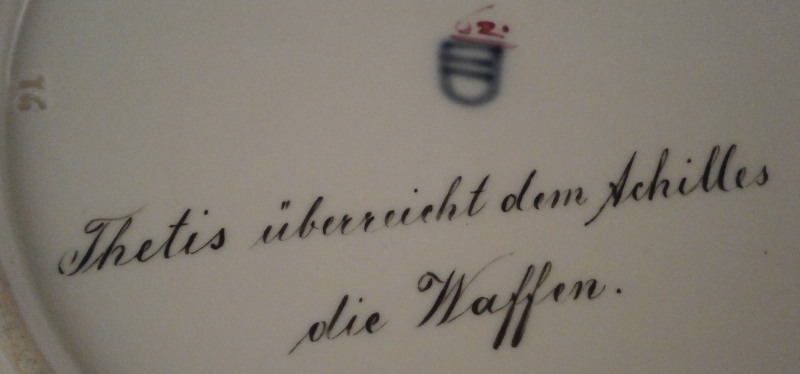 62.
91
Thetis überreicht dem Achilles
die Waffen.